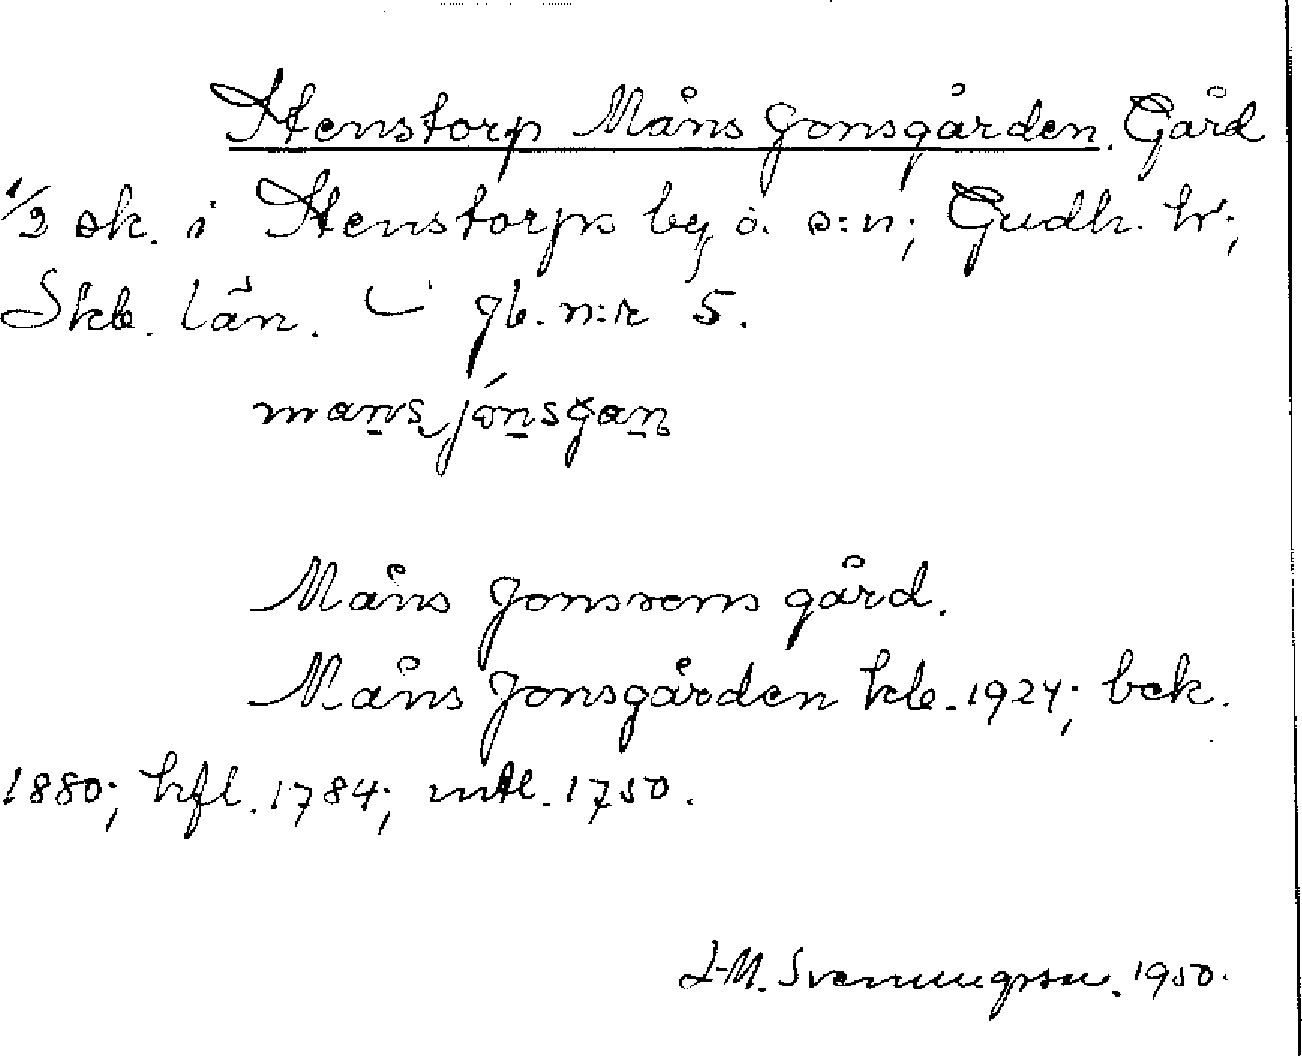 Stenstorp Måns Jonsgården. Gård
1/2 sk. i Stenstorps by o. s:n; Gudh. hr;
Skb. län. gb. n:r 5.
mans jónsgan
Måns Jonssons gård.
Måns Jonsgården kb. 1924; bek.
1880; hfl. 1784; mtl. 1750.
L-M. Svenungsson. 1950.